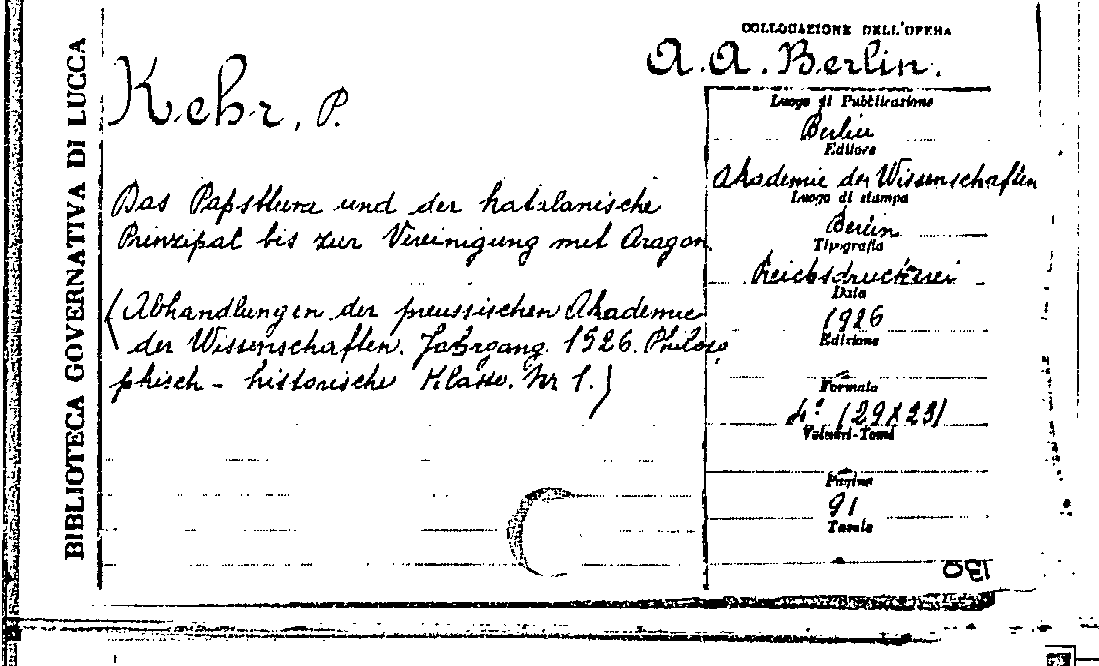 BIBLIOTECA GOVERNATIVA DI LUCCA
COLLOCAZIONE DELL'OPERA
A. A. Berlin.
Kehr, P.
Das Papsttum und der katalanische
Prinzipat bis zur Vereinigung mit Aragon.
(Abhandlungen der preussischen Akademie
der Wissenschaften. Jahrgang 1926. Philoso
phisch - historische Klasse. Nr 1.)
Luogo di Pubblicazione
Berlin
Editore
Akademie der Wissenschaften
Luogo di stampa
Berlin
Tipografia
Reichsdruckerei
Data
1926
Edizione
—
Formato
4° (29X23)
Volumi-Tomi
—
Pagine
91
Tavole
130